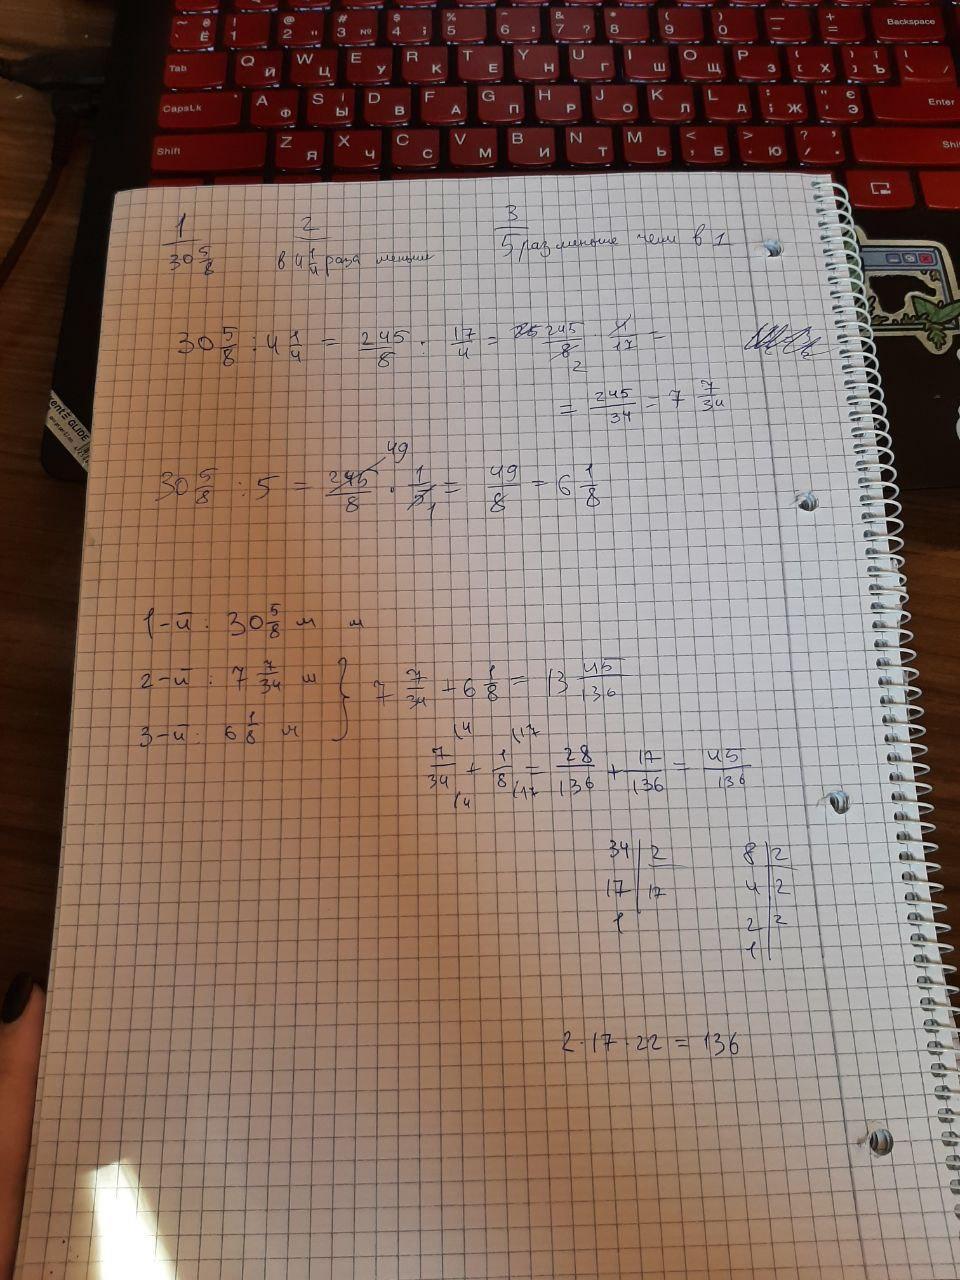 ~ Ё ! 1 @ 2 " # 3 № $ 4 ; % 5 ^ 6 : & 7 ? * 8 ( 9 ) 0 _ - + = Backspace
Tab Q Й W Ц E У R К T Е Y Н U Г I Ш O Щ P З { [ Х } ] Ъ
CapsLk A Ф S Ы D В F А G П H Р J О K Л L Д : ; Ж " ' Э Є Enter
Shift Z Я X Ч C С V М B И N Т M Ь < , Б > . Ю ? / Shi
1 2 3
30 5/8 в 4 1/4 раза меньше 5 раз меньше чем в 1
30 5/8 : 4 1/4 = 245/8 : 17/4 = 245/8 2 · 1/17 =
= 245/34 = 7 7/34
49
30 5/8 : 5 = 245/8 · 1/5 1 = 49/8 = 6 1/8
1-й : 30 5/8 м м
2-й : 7 7/34 м } 7 7/34 + 6 1/8 = 13 45/136
3-й : 6 1/8 м
(4 (17
7/34 + 1/8 = 28/136 + 17/136 = 45/136
(4 (17
34 2 8 2
17 17 4 2
1 2 2
1
2·17·22 = 136